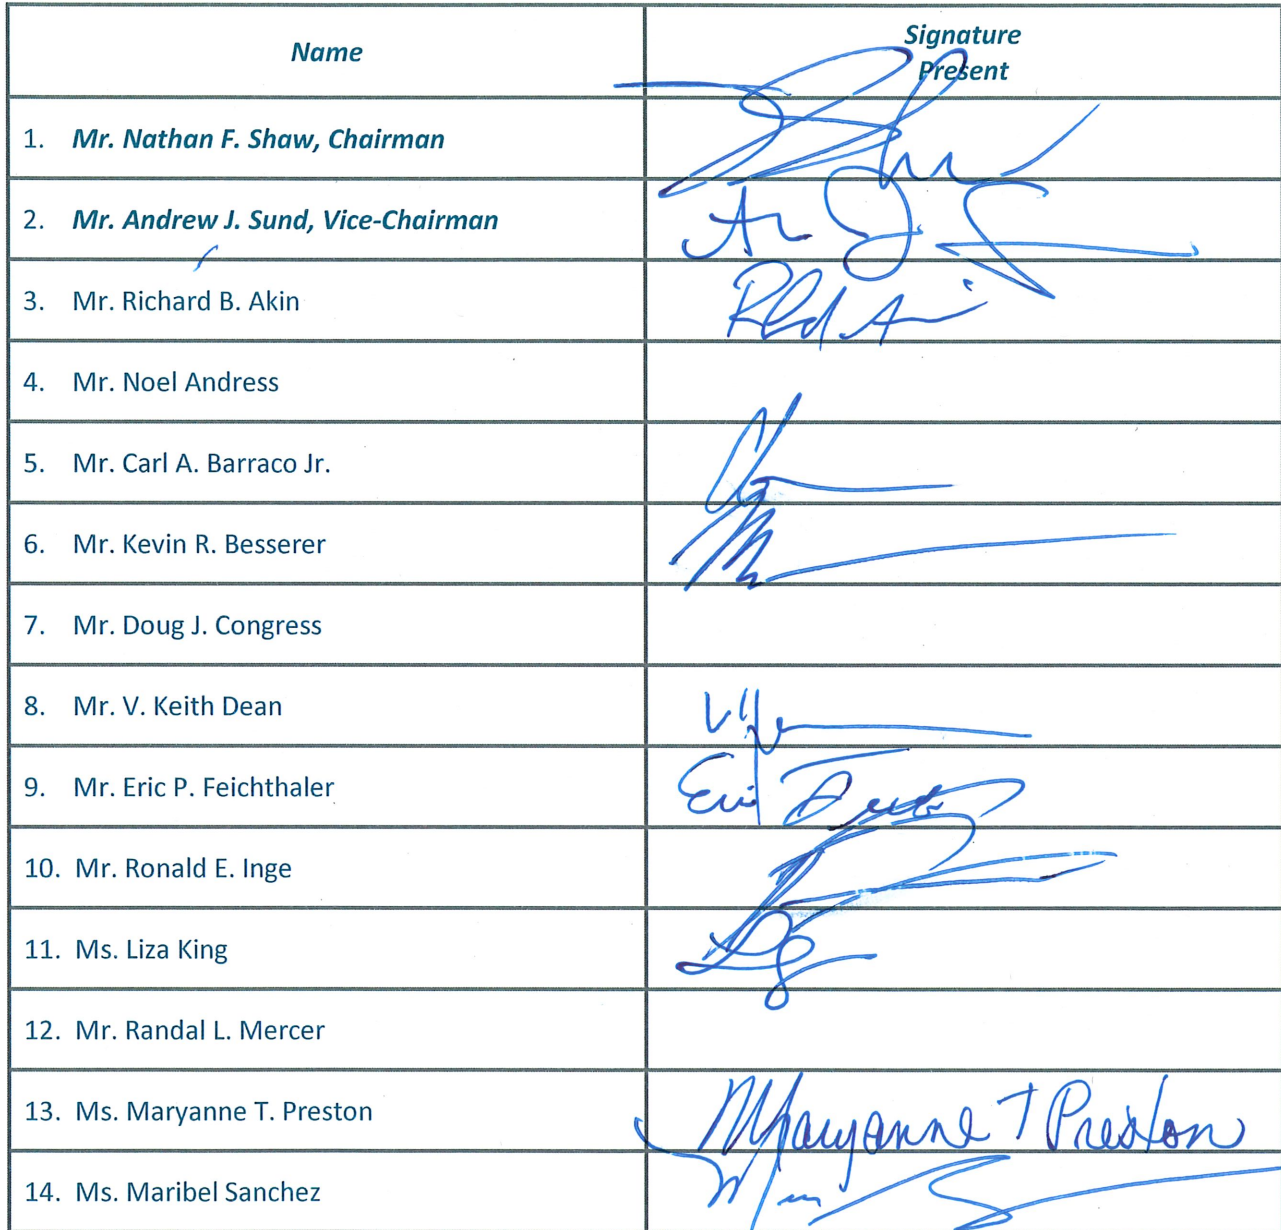 Name
Signature
Present
1. Mr. Nathan F. Shaw, Chairman
2. Mr. Andrew J. Sund, Vice-Chairman
3. Mr. Richard B. Akin
4. Mr. Noel Andress
5. Mr. Carl A. Barraco Jr.
6. Mr. Kevin R. Besserer
7. Mr. Doug J. Congress
8. Mr. V. Keith Dean
9. Mr. Eric P. Feichthaler
10. Mr. Ronald E. Inge
11. Ms. Liza King
12. Mr. Randal L. Mercer
13. Ms. Maryanne T. Preston Maryanne T Preston
14. Ms. Maribel Sanchez